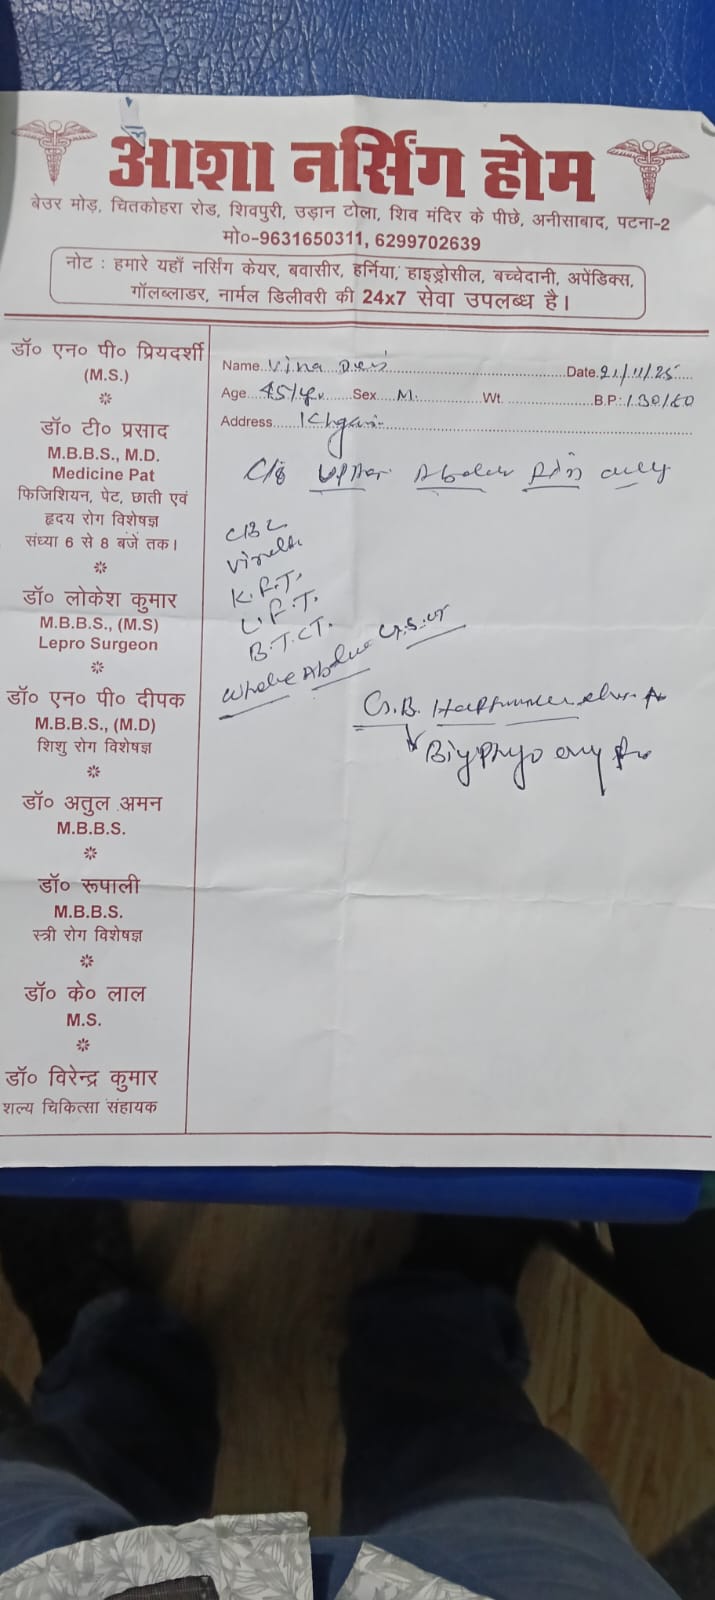 आशा नर्सिंग होम
बेउर मोड़, चितकोहरा रोड, शिवपुरी, उड़ान टोला, शिव मंदिर के पीछे, अनीसाबाद, पटना-2
मो०-9631650311, 6299702639
नोट : हमारे यहाँ नर्सिंग केयर, बवासीर, हर्निया, हाइड्रोसील, बच्चेदानी, अपेंडिक्स,
गॉलब्लाडर, नार्मल डिलीवरी की 24x7 सेवा उपलब्ध है।
डॉ० एन० पी० प्रियदर्शी
(M.S.)
डॉ० टी० प्रसाद
M.B.B.S., M.D.
Medicine Pat
फिजिशियन, पेट, छाती एवं
हृदय रोग विशेषज्ञ
संध्या 6 से 8 बजें तक।
डॉ० लोकेश कुमार
M.B.B.S., (M.S)
Lepro Surgeon
डॉ० एन० पी० दीपक
M.B.B.S., (M.D)
शिशु रोग विशेषज्ञ
डॉ० अतुल अमन
M.B.B.S.
डॉ० रूपाली
M.B.B.S.
स्त्री रोग विशेषज्ञ
डॉ० के० लाल
M.S.
डॉ० विरेन्द्र कुमार
शल्य चिकित्सा संहायक
Name..Vina Devi Date.21/11/25
Age...45/yr Sex..M. Wt. B.P.:130/80
Address
C/o Upper
CBC
K.F.T.
L.F.T.
B.T.CT.
Whole
G.B.